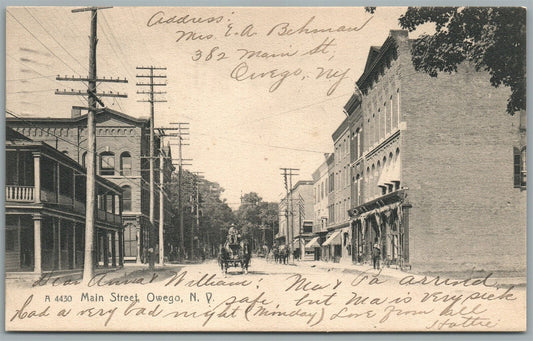 Address:
Mrs. E. A. Behman
382 Main St,
Owego, Ny
Dear Anna + William; Ma + Pa arrived
A 4430 Main Street, Owego, N. Y.
safe, but Ma is very sick
had a very bad night (Monday) Love from all
Hattie